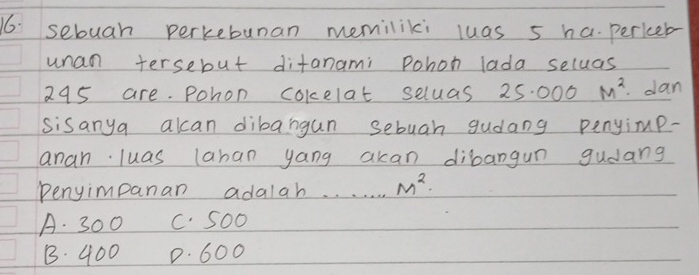 16. Sebuah perkebunan memiliki luas 5 ha. perkeb-
unan tersebut ditanami Pohon lada seluas
245 are. Pohon cokelat seluas 25.000 M². dan
sisanya akan dibangun sebuah gudang penyimp-
anan. luas lahan yang akan dibangun gudang
penyimpanan adalah ....... M².
A. 300 C. 500
B. 400 D. 600